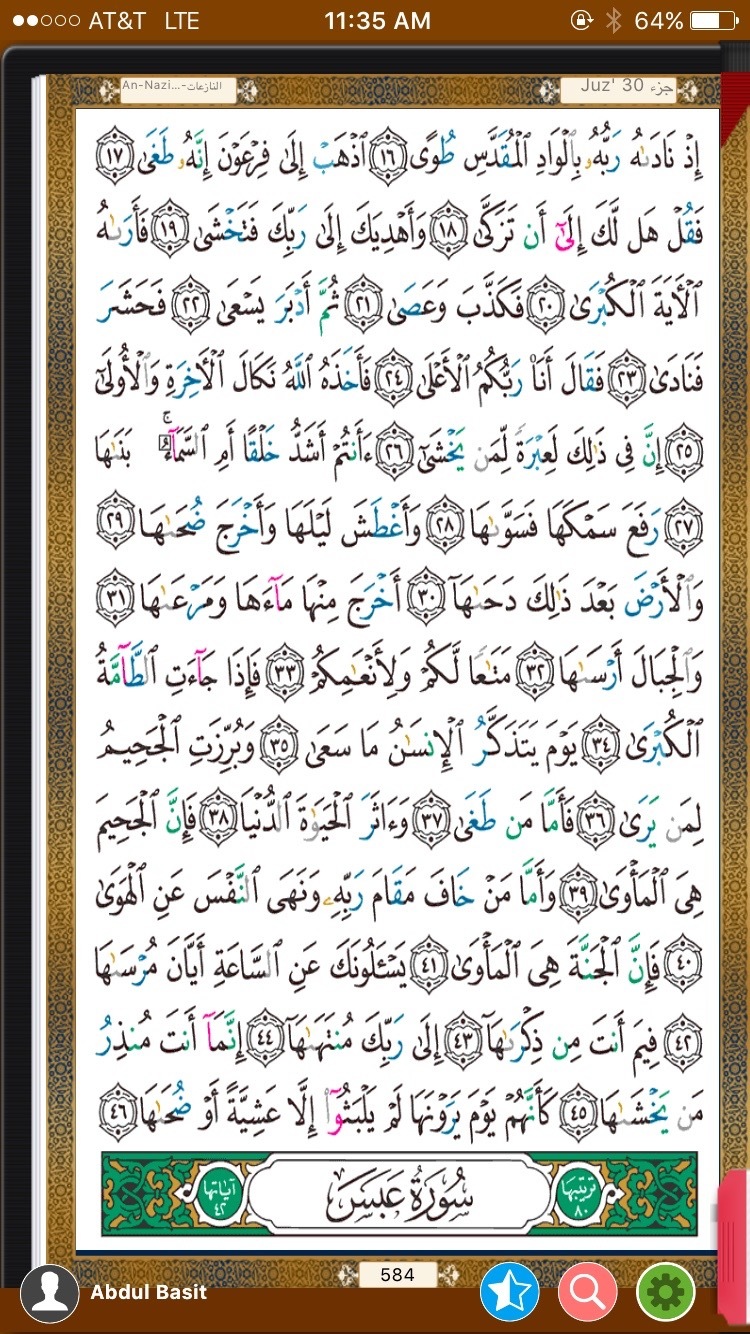 AT&T LTE 11:35 AM 64%
An-Nazi...-النازعات Juz' 30 جزء
إِذْ نَادَىٰهُ رَبُّهُۥ بِٱلْوَادِ ٱلْمُقَدَّسِ طُوًى ١٦ ٱذْهَبْ إِلَىٰ فِرْعَوْنَ إِنَّهُۥ طَغَىٰ ١٧
فَقُلْ هَل لَّكَ إِلَىٰٓ أَن تَزَكَّىٰ ١٨ وَأَهْدِيَكَ إِلَىٰ رَبِّكَ فَتَخْشَىٰ ١٩ فَأَرَىٰهُ
ٱلْأَيَةَ ٱلْكُبْرَىٰ ٢٠ فَكَذَّبَ وَعَصَىٰ ٢١ ثُمَّ أَدْبَرَ يَسْعَىٰ ٢٢ فَحَشَرَ
فَنَادَىٰ ٢٣ فَقَالَ أَنَا۠ رَبُّكُمُ ٱلْأَعْلَىٰ ٢٤ فَأَخَذَهُ ٱللَّهُ نَكَالَ ٱلْأَخِرَةِ وَٱلْأُولَىٰٓ
٢٥ إِنَّ فِى ذَٰلِكَ لَعِبْرَةً لِّمَن يَخْشَىٰٓ ٢٦ ءَأَنتُمْ أَشَدُّ خَلْقًا أَمِ ٱلسَّمَآءُ ۚ بَنَىٰهَا
٢٧ رَفَعَ سَمْكَهَا فَسَوَّىٰهَا ٢٨ وَأَغْطَشَ لَيْلَهَا وَأَخْرَجَ ضُحَىٰهَا ٢٩
وَٱلْأَرْضَ بَعْدَ ذَٰلِكَ دَحَىٰهَآ ٣٠ أَخْرَجَ مِنْهَا مَآءَهَا وَمَرْعَىٰهَا ٣١
وَٱلْجِبَالَ أَرْسَىٰهَا ٣٢ مَتَٰعًا لَّكُمْ وَلِأَنْعَٰمِكُمْ ٣٣ فَإِذَا جَآءَتِ ٱلطَّآمَّةُ
ٱلْكُبْرَىٰ ٣٤ يَوْمَ يَتَذَكَّرُ ٱلْإِنسَٰنُ مَا سَعَىٰ ٣٥ وَبُرِّزَتِ ٱلْجَحِيمُ
لِمَن يَرَىٰ ٣٦ فَأَمَّا مَن طَغَىٰ ٣٧ وَءَاثَرَ ٱلْحَيَوٰةَ ٱلدُّنْيَا ٣٨ فَإِنَّ ٱلْجَحِيمَ
هِىَ ٱلْمَأْوَىٰ ٣٩ وَأَمَّا مَنْ خَافَ مَقَامَ رَبِّهِۦ وَنَهَى ٱلنَّفْسَ عَنِ ٱلْهَوَىٰ
٤٠ فَإِنَّ ٱلْجَنَّةَ هِىَ ٱلْمَأْوَىٰ ٤١ يَسْـَٔلُونَكَ عَنِ ٱلسَّاعَةِ أَيَّانَ مُرْسَىٰهَا
٤٢ فِيمَ أَنتَ مِن ذِكْرَىٰهَآ ٤٣ إِلَىٰ رَبِّكَ مُنتَهَىٰهَآ ٤٤ إِنَّمَآ أَنتَ مُنذِرُ
مَن يَخْشَىٰهَا ٤٥ كَأَنَّهُمْ يَوْمَ يَرَوْنَهَا لَمْ يَلْبَثُوٓا۟ إِلَّا عَشِيَّةً أَوْ ضُحَىٰهَا ٤٦
ترتيبها ٨٠ سُورَةُ عَبَسَ آياتها ٤٢
584
Abdul Basit